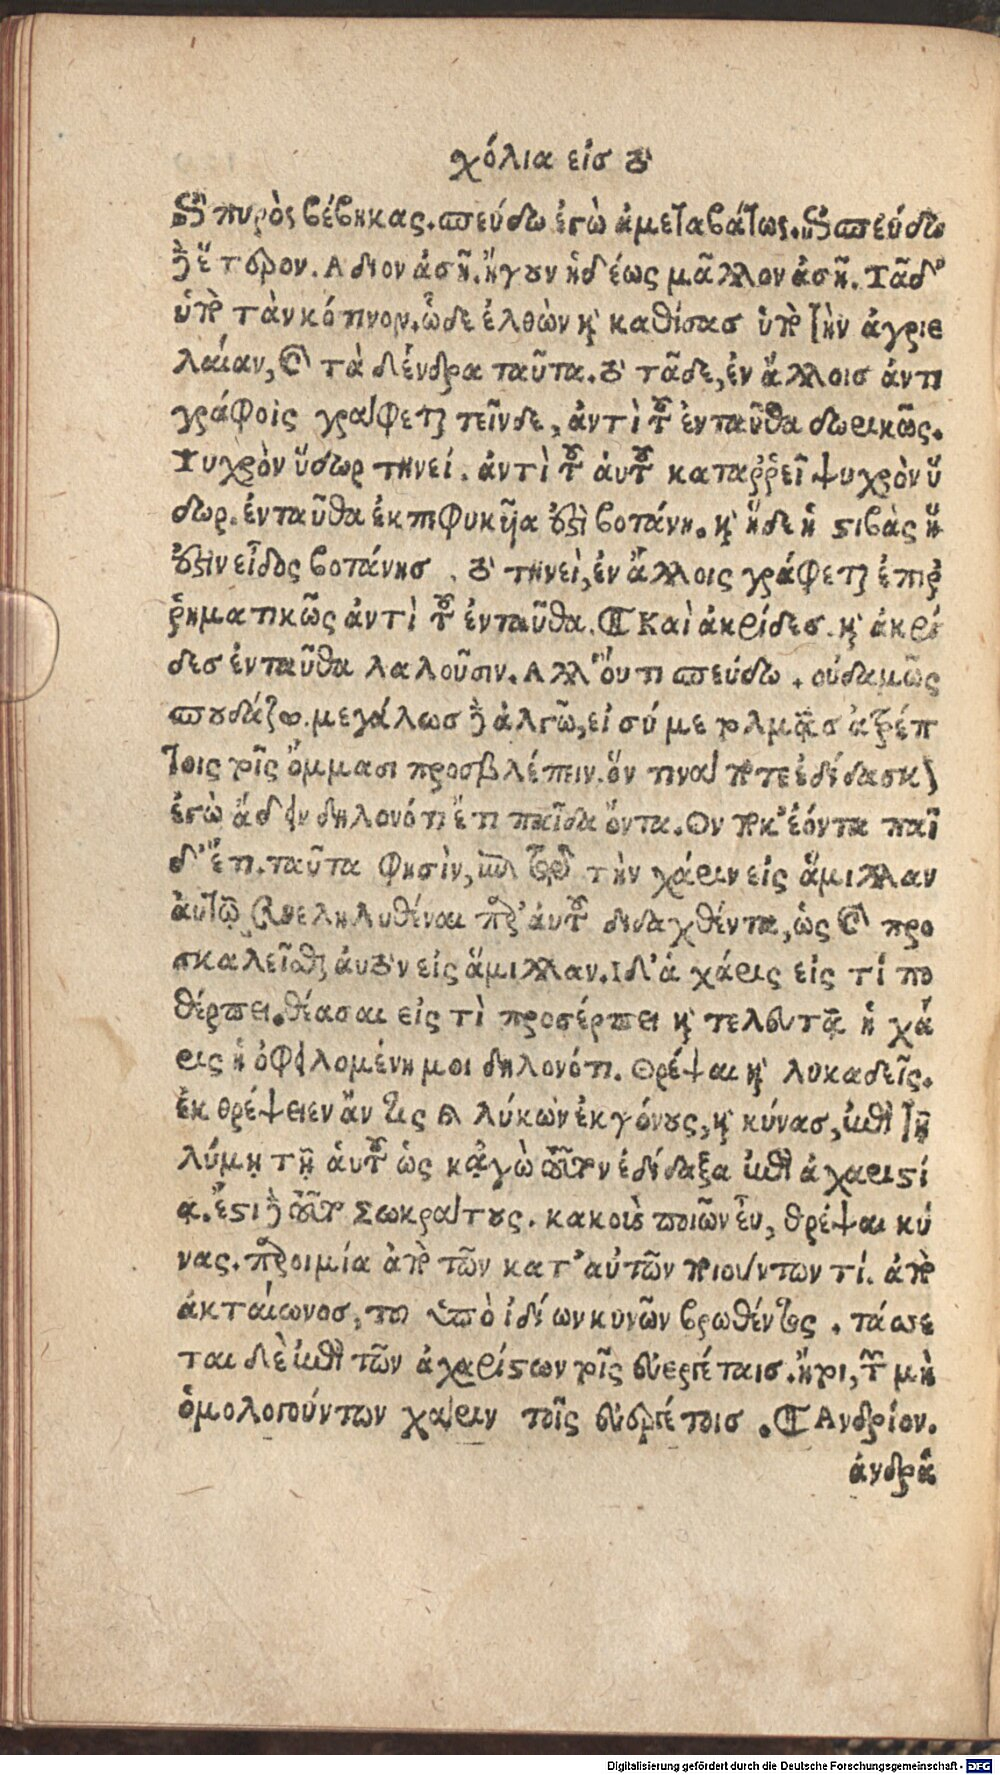 χόλια εἰσ τὸ
τοῦ πυρὸς βέβηκας. σπεύδω ἐγὼ ἀμεταβάτως. οὐ σπεύδω
δὲ ἕτερον. Αδιον ἀσῆ. ἤγουν ἡδέως μᾶλλον ἀσῆ. Τᾶδ'
ὑπὸ τὰν κότινον. ὧδε ἐλθὼν καὶ καθίσασ ὑπὸ τὴν ἀγριε
λαίαν, καὶ τὰ δένδρα ταῦτα. τὸ τᾶδε, ἐν ἄλλοισ ἀντι
γράφοις γράφεται τεῖνδε, ἀντὶ τοῦ ἐνταῦθα δωρικῶς.
Ψυχρὸν ὕδωρ τηνεί. ἀντὶ τοῦ αὐτοῦ καταῤῥεῖ ψυχρὸν ὕ
δωρ. ἐνταῦθα ἐκπεφυκυῖα ἐστὶ βοτάνη. καὶ ἥδε ἡ στιβὰς ἥ
ἐστιν εἶδος βοτάνησ . τὸ τηνεὶ, ἐν ἄλλοις γράφεται ἐπιῤ
ῥηματικῶς ἀντὶ τοῦ ἐνταῦθα. ¶ Καὶ ἀκρίδεσ. καὶ ἀκρί
δεσ ἐνταῦθα λαλοῦσιν. Αλλ' οὔτι σπεύδω . οὐδαμῶς
σπουδάζω. μεγάλωσ δὲ ἀλγῶ, εἰ σύ με τολμᾷσ ἀτρέπ
τοις τοῖς ὄμμασι προσβλέπειν. ὅν τινα ποτε ἐδίδασκον
ἐγὼ ἄδειν δηλονότι ἔτι παῖδα ὄντα. Ον ποκ' ἐόντα παῖ
δ' ἔτι. ταῦτα φησὶν, διὰ τὸ τὴν χάριν εἰς ἅμιλλαν
αὐτῷ συνεληλυθέναι παρ' αὐτοῦ διδαχθέντα, ὡς καὶ προ
σκαλεῖσθαι αὐτὸν εἰς ἅμιλλαν. Ιδ' ἁ χάρις εἰς τί πο
θέρπει. θέασαι εἰς τὶ προσέρπει καὶ τελευτᾷ ἡ χά
ρις ἡ ὀφειλομένη μοι δηλονότι. Θρέψαι καὶ λυκιδεῖς.
ἐκθρέψειεν ἄν τις καὶ λύκων ἐκγόνους, καὶ κύνασ, ἐπὶ τῇ
λύμῃ τῇ αὑτοῦ ὡς κᾀγὼ τοῦτον ἐδίδαξα ἐπὶ ἀχαριστί
ᾳ. ἔστι δὲ τοῦτο Σωκράτους. κακοὺς ποιῶν εὖ, θρέψαι κύ
νας. παροιμία ἀπὸ τῶν κατ' αὐτῶν ποιούντων τί. ἀπὸ
ἀκταίωνοσ, τοῦ ὑπὸ ἰδίων κυνῶν βρωθέντος . τάσσε
ται δὲ ἐπὶ τῶν ἀχαρίστων τοῖς εὐεργέταισ. ἤτοι, τῶν μὴ
ὁμολογούντων χάριν τοῖς εὐεργέταισ . ¶ Ανδρίον.
ἀνδρά